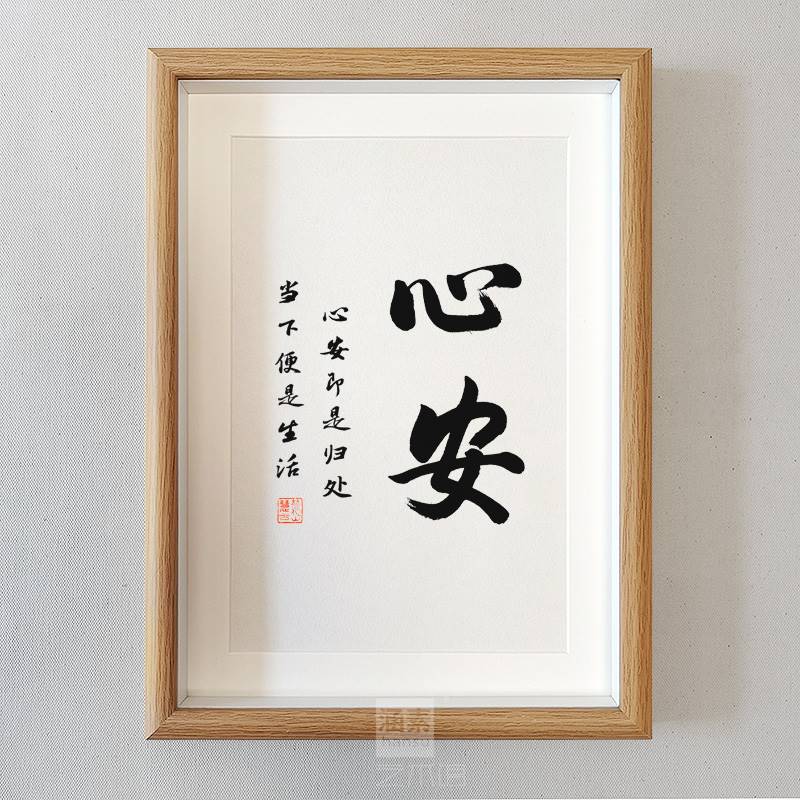 心安
心安即是归处
当下便是生活